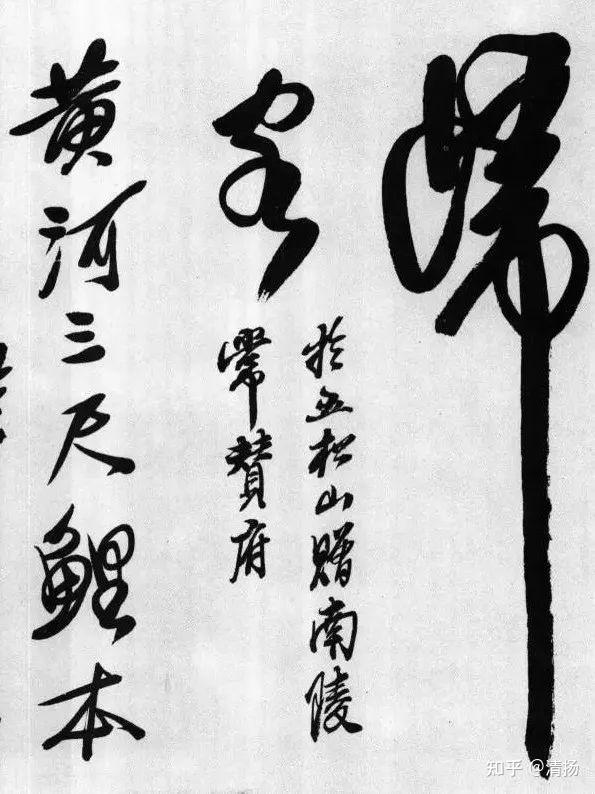 歸
客
於五松山贈南陵
常賛府
黄河三尺鯉本
知乎 @清扬